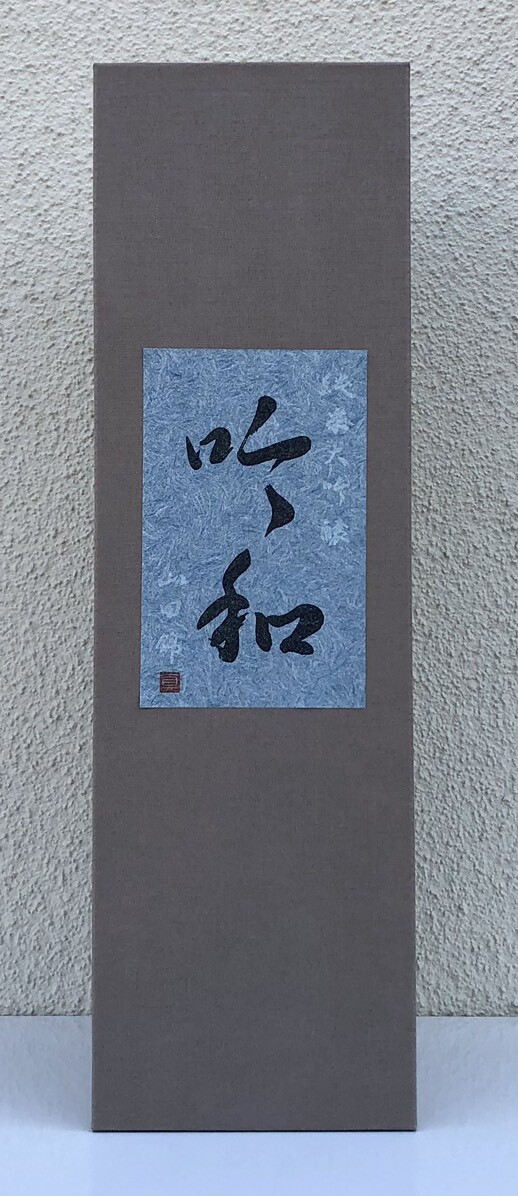 純米大吟醸
吟和
山田錦